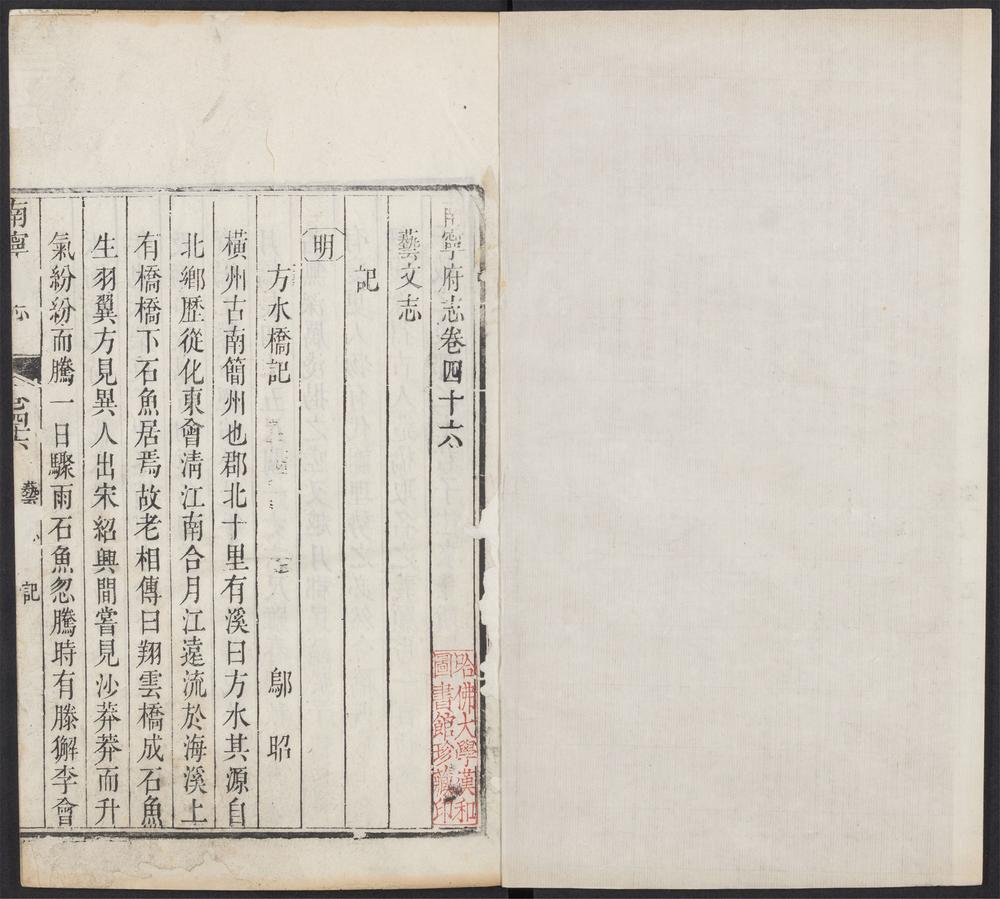 南寧府志卷四十六
藝文志
記
明
方水橋記 鄔昭
橫州古南簡州也郡北十里有溪曰方水其源自
北鄉歷從化東會清江南合月江遶流於海溪上
有橋橋下石魚居焉故老相傳曰翔雲橋成石魚
生羽翼方見異人出宋紹興間嘗見沙莽莽而升
氣紛紛而騰一日驟雨石魚忽騰時有滕獬李會
南寧
藝
記
哈佛大學漢和
圖書館珍藏印